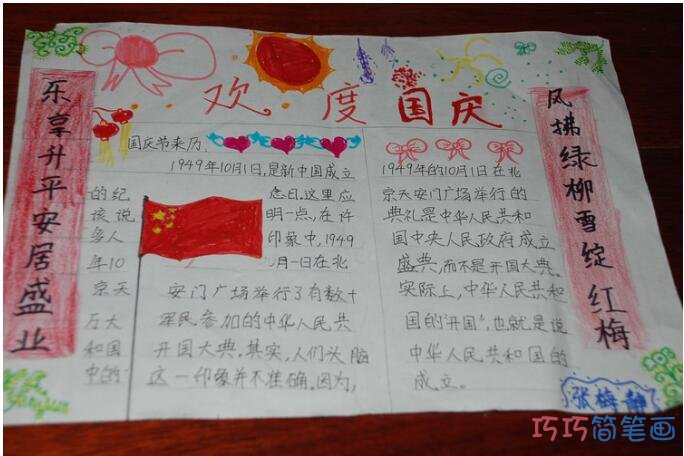 欢度国庆
乐享升平安居盛业
国庆节来历
1949年10月1日,是新中国成立
的纪念日,这里应
该说明一点,在许
多人印象中,1949
年10月一日在北
京天安门广场举行了有数十
万大军民参加的中华人民共
和国开国大典,其实,人们头脑
中的这一印象并不准确。因为,
1949年的10月1日在北
京天安门广场举行的
典礼是中华人民共和
国中央人民政府成立
盛典,而不是开国大典。
实际上,中华人民共和
国的"开国",也就是说
中华人民共和国的
成立。
风拂绿柳雪绽红梅
张梅静
巧巧简笔画